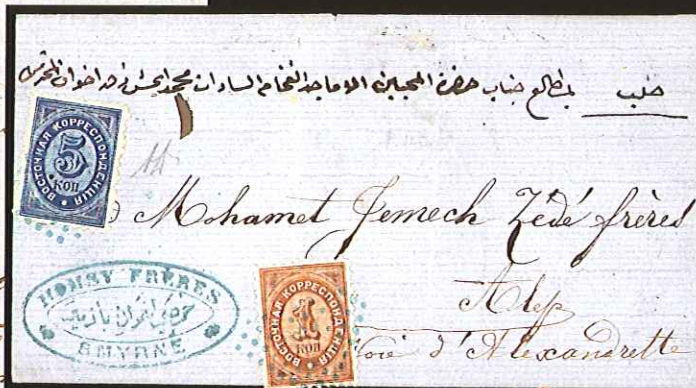 حلب بمطالع جناب حضرة المحبين الاماجد الفخام السادات محمد
ВОСТОЧНАЯ КОРРЕСПОНДЕНЦІЯ
5
КОП
Mohamet Jemech Zédé frères
Alep
Voie d'Alexandrette
HOMSY FRÈRES
حمصي اخوان بازمير
SMYRNE
ВОСТОЧНАЯ КОРРЕСПОНДЕНЦІЯ
1
КОП